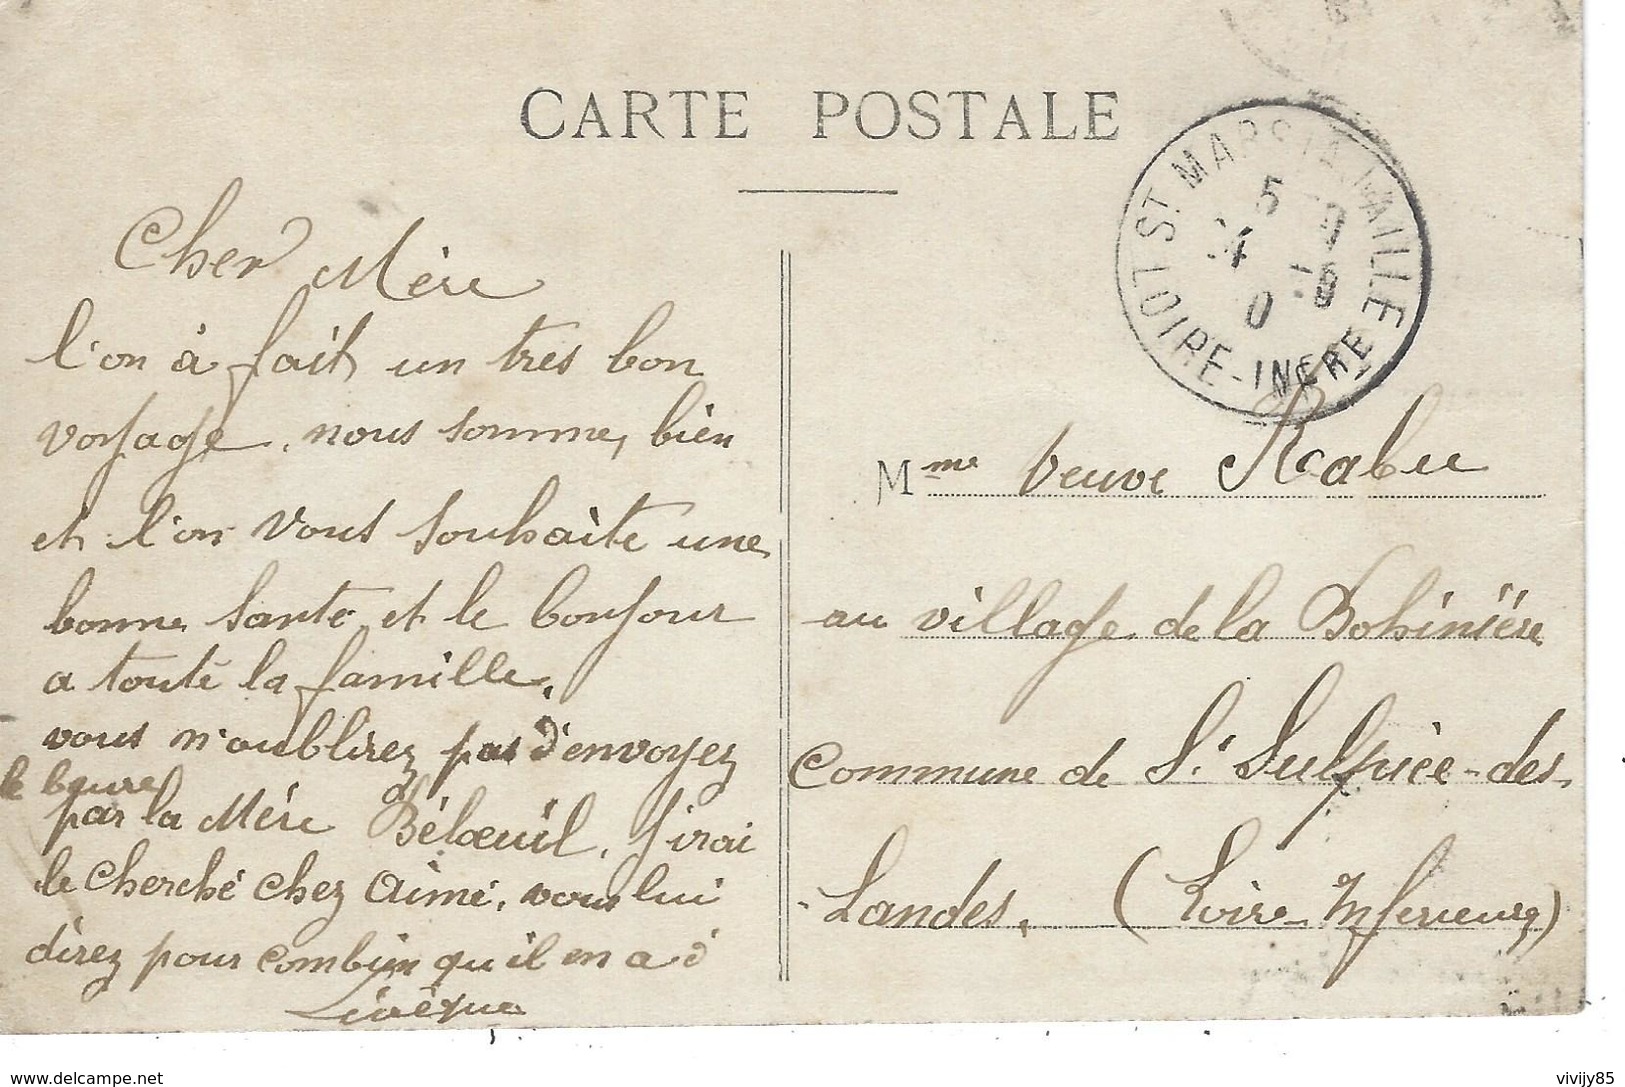 CARTE POSTALE
ST MARS LA JAILLE
5 - 9
24
LOIRE-INFRE
Cher Mère
l'on à fait un tres bon
voyage, nous somme, bien
et l'on vous souhaite une
bonne santé et le bonjour
a toute la famille,
vous n'oublirez pas d'envoyez
le beure
par la Mère Béloeuil, j'irai
le cherché chez Aimé, vous lui
direz pour combien qu'il en a d
Livèque
Mme Veuve Rabu
au village de la Bohinière
Commune de St Sulpice-des-
-Landes, (Loire Inférieure)
www.delcampe.net
vivijy85